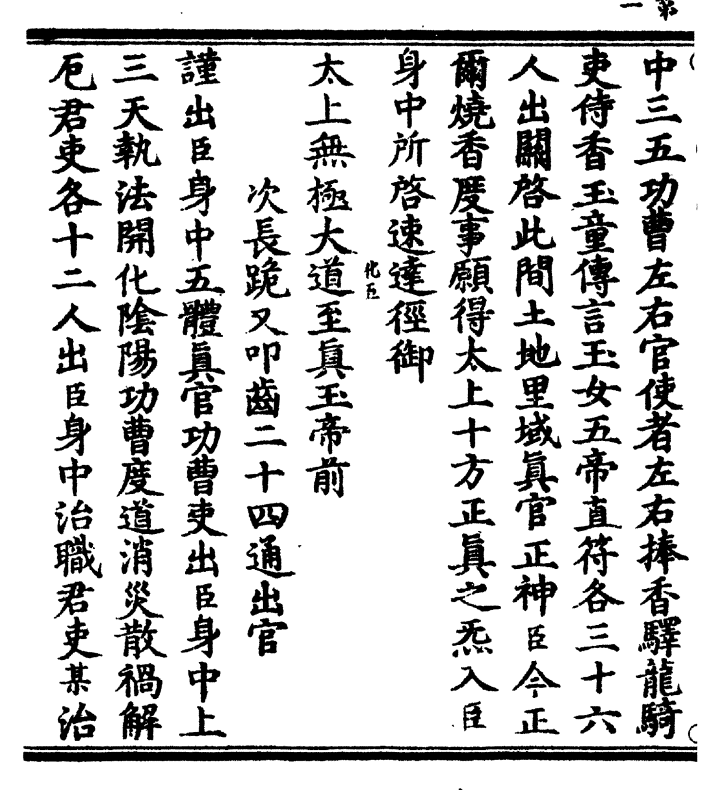 第一
中三五功曹左右官使者左右捧香驛龍騎
吏侍香玉童傳言玉女五帝直符各三十六
人出關啓此間土地里域真官正神臣今正
爾燒香度事願得太上十方正真之炁入臣
身中所啓速達徑御
化臣
太上無極大道至真玉帝前
次長跪又叩齒二十四通出官
謹出臣身中五體真官功曹吏出臣身中上
三天執法開化陰陽功曹度道消災散禍解
厄君吏各十二人出臣身中治職君吏某治